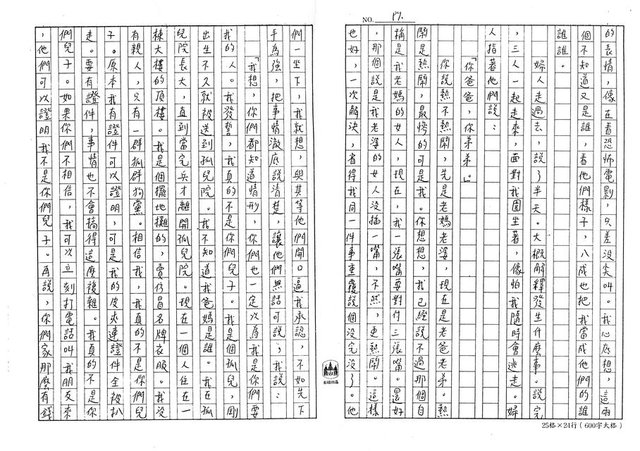 NO. 17.
的表情，像在看恐怖電影，只差沒尖叫。我心想，這兩
個不知道又是誰，看他們樣子，八成也把我當成他們的誰
誰誰。
婦人走過去，說了半天。大概解釋發生什麼事。說完
，三人一起走來，面對我圍坐著，像怕我隨時會逃走。婦
人指著他們說：
「你爸爸，你弟弟。」
你說熱不熱鬧，先是老媽老婆，現在是老爸老弟。熱
鬧是熱鬧，最慘的可是我。你想想，我已經說不過那個自
稱是我老媽的女人，現在，我一張嘴要對付三張嘴。還好
，那個說是我老婆的女人沒插一嘴，不然，更熱鬧。這樣
也好，一次解決，省得我同一件事重複說個沒完。他
們一坐下，我就想，與其等他們開口逼我承認，不如先下
手為強，把事情澈底說清楚，讓他們無話可說，我說：
「我想，你們都知道情形，你們也一定以為我是你們要
找的人。我發誓，我真的不是你們兒子。我是個孤兒，剛
出生不久就被送到孤兒院。我不知道我爸媽是誰。我在孤
兒院長大，直到當完兵才離開孤兒院。現在一個人住在一
棟大樓的頂樓。我是個擺地攤的，賣仿冒名牌衣服。我沒
有親人，只有一群狐群狗黨。相信我，我真的不是你們兒
子。原本我有證件可以證明，可是我的皮夾連證件全被扒
走。要有證件，事情也不會搞得這麼複雜。我真的不是你
們兒子。如果你們不相信，我可以立刻打電話叫我朋友來
，他們可以證明我不是你們兒子。再說，你們家那麼有錢
25格×24行（600字大格）